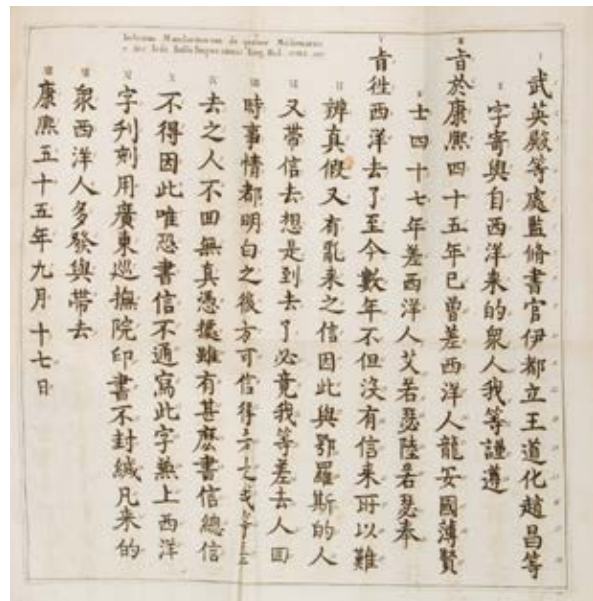 武英殿等處監脩書官伊都立王道化趙昌等
字寄與自西洋來的衆人我等謹遵
旨於康熙四十五年已曾差西洋人龍安國薄賢
士四十七年差西洋人艾若瑟陸若瑟奉
旨徃西洋去了至今數年不但沒有信來所以難
辨真假又有亂來之信因此與鄂羅斯的人
又帶信去想是到去了必竟我等差去人回
時事情都明白之後方可信得
去之人不回無真憑據雖有甚麽書信總信
不得因此唯恐書信不通寫此字兼上西洋
字刋刻用廣東巡撫院印書不封緘凡來的
衆西洋人多發與帶去
康熙五十五年九月十七日